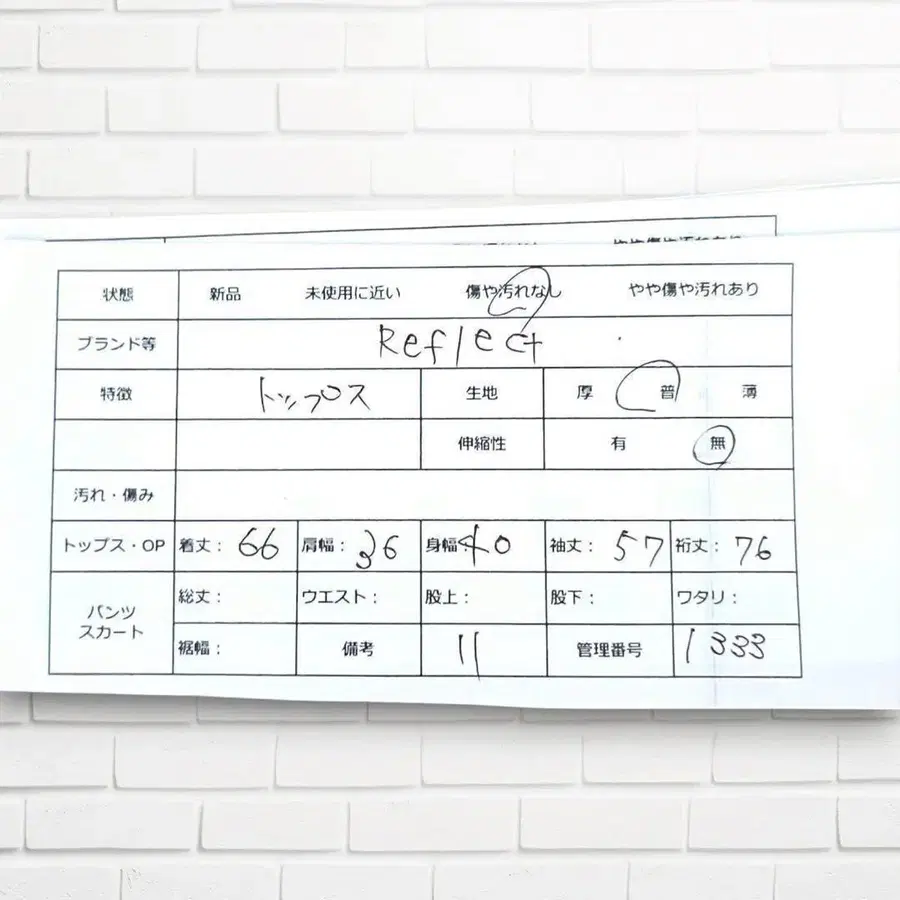 状態 新品 未使用に近い 傷や汚れなし やや傷や汚れあり
ブランド等 Reflect
特徴 トップス 生地 厚 普 薄
伸縮性 有 無
汚れ・傷み
トップス・OP 着丈： 66 肩幅： 36 身幅： 40 袖丈： 57 裄丈： 76
パンツ
スカート
総丈： ウエスト： 股上： 股下： ワタリ：
裾幅： 備考 11 管理番号 1333